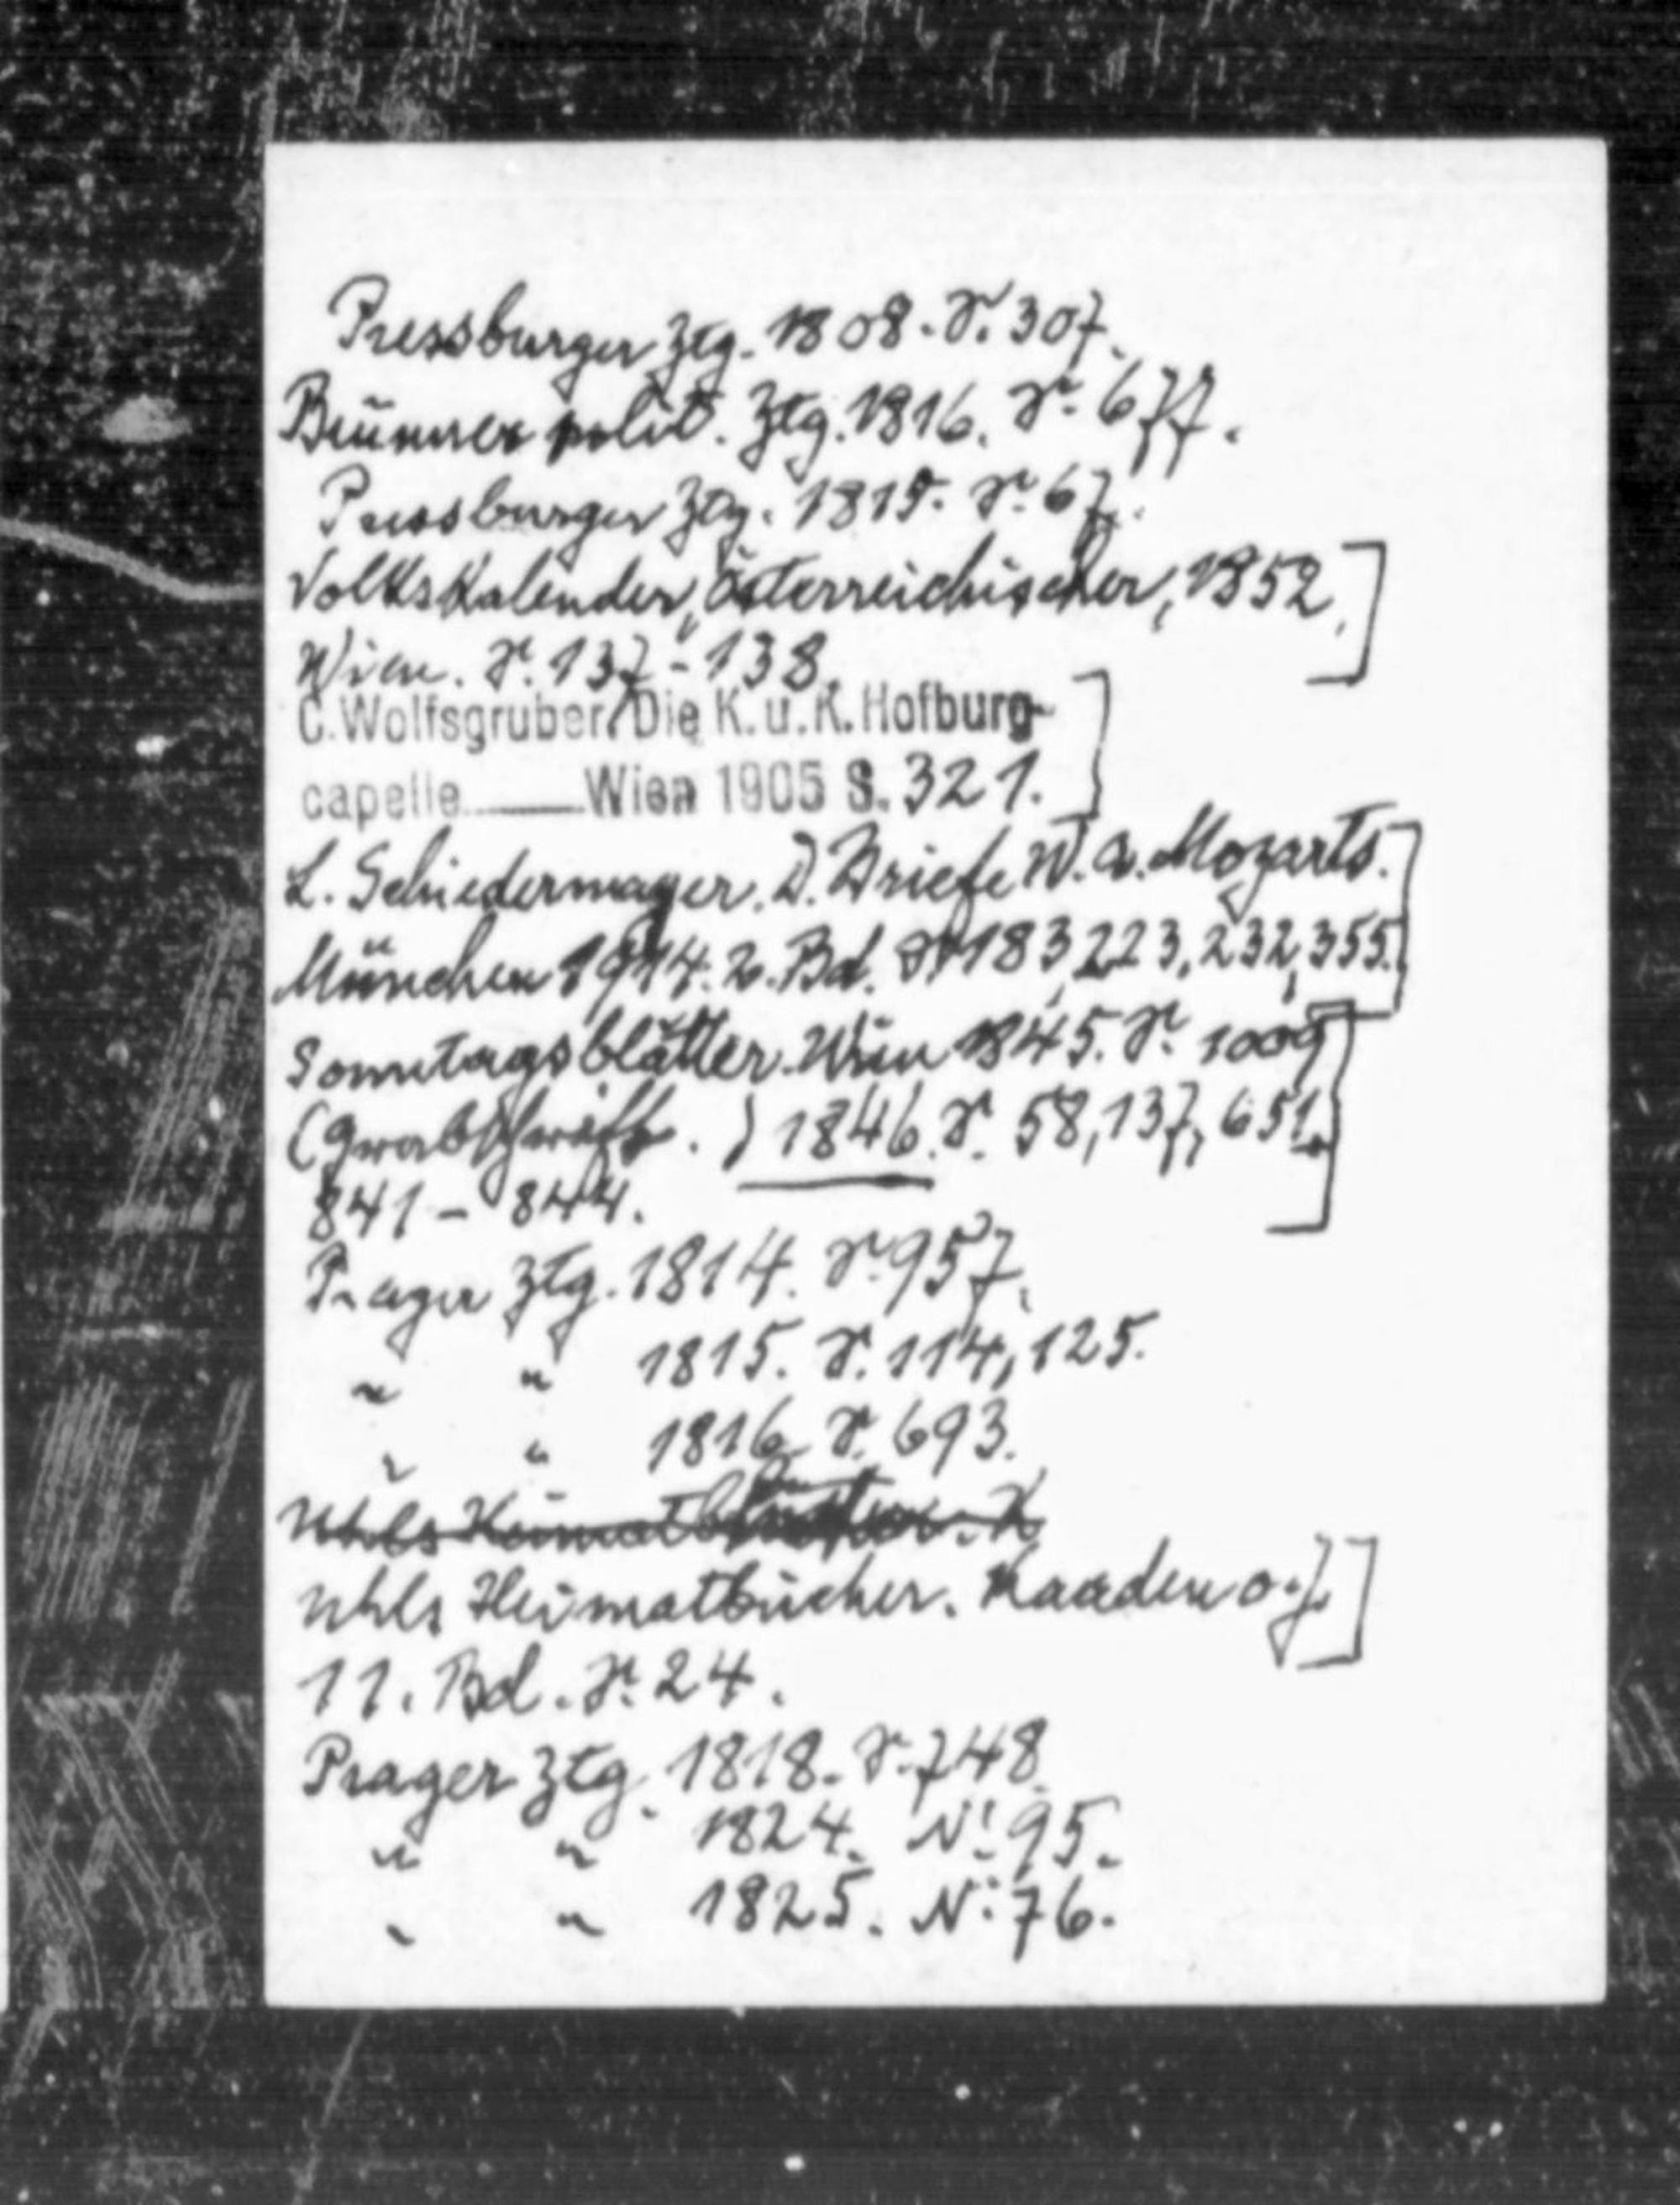 Pressburger Ztg. 1808. S. 307.
Brünner polit. Ztg. 1816. S. 677.
Pressburger Ztg. 1815. S. 67.
Volkskalender, Österreichischer, 1852,
Wien. S. 137-138.
C. Wolfsgruber. Die K. u. K. Hofburg-
capelle Wien 1905 S. 321.
L. Schiedermayer. D. Briefe W. A. Mozarts.
München 1914. 2. Bd. S. 183, 223, 232, 355.
Sonntagsblätter. Wien 1845. S. 1009
(Grabschrift.) 1846. S. 58, 137, 651.
841 - 844.
Prager Ztg. 1814. S. 957.
" " 1815. S. 114, 125.
" " 1816 S. 693.
Uhls Heimatbücher. K
Uhls Heimatbücher. Kaaden o. J.
11. Bd. S. 24.
Prager Ztg. 1818. S. 748.
" " 1824. N. 95.
" " 1825. N. 76.